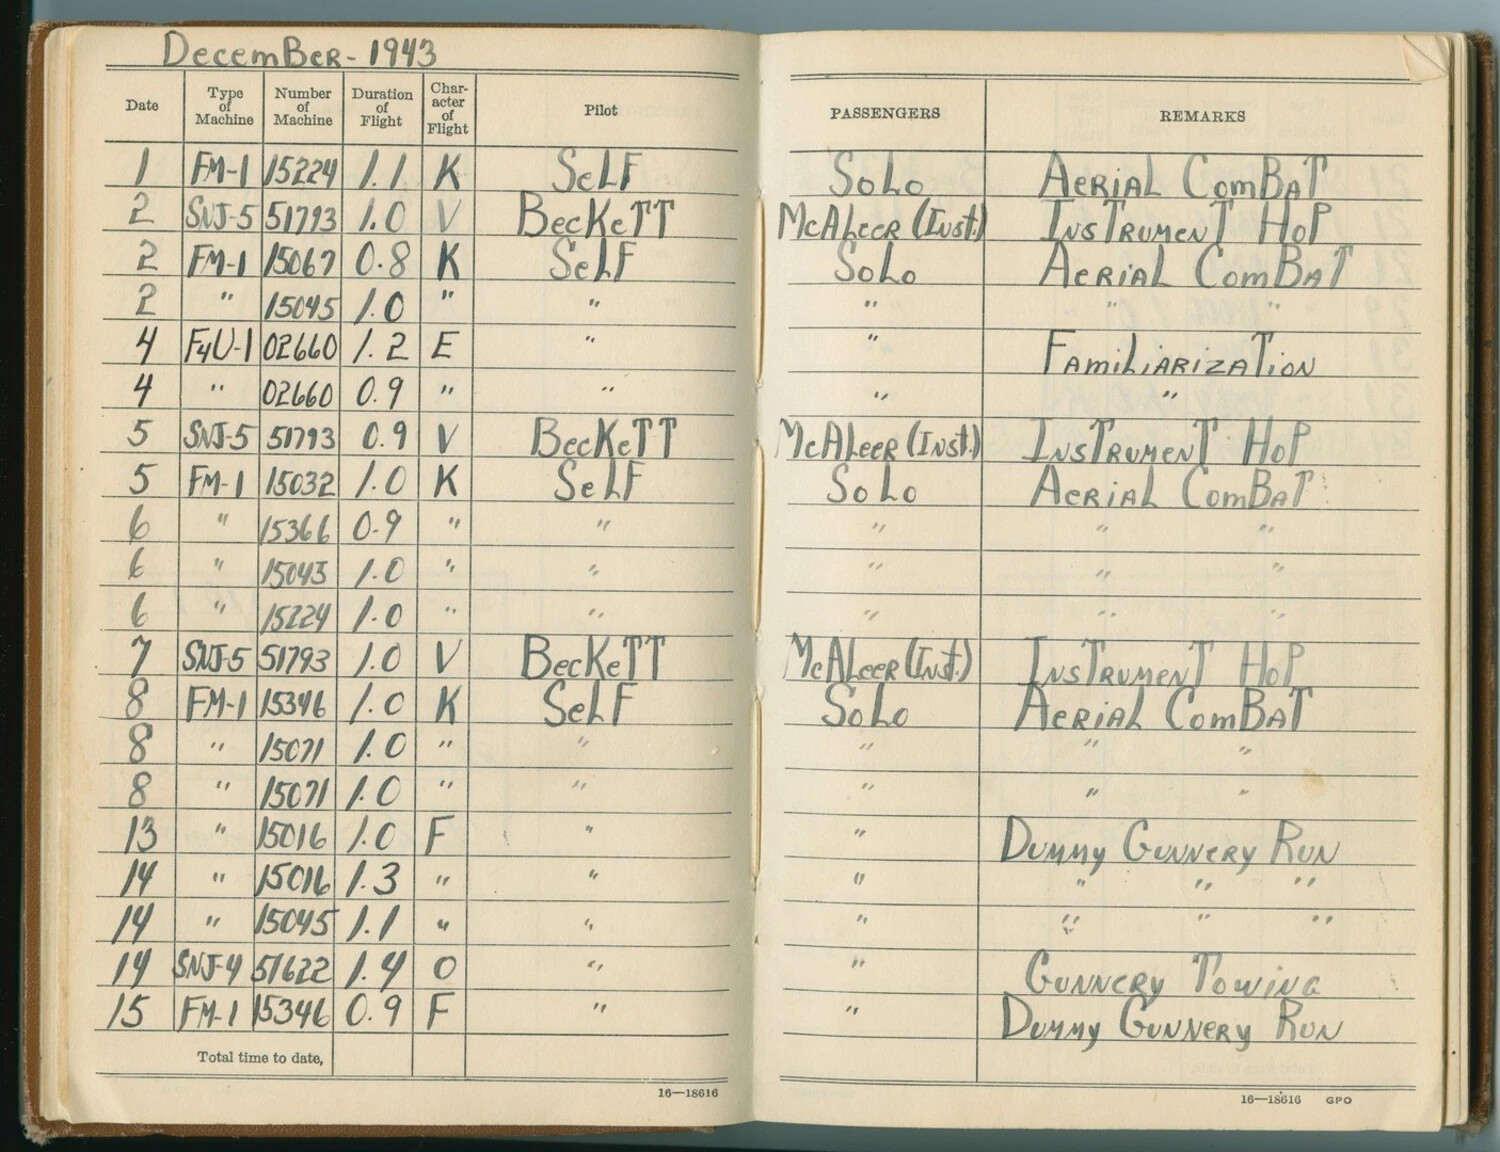 December - 1943
Date Type of Machine Number of Machine Duration of Flight Char-acter of Flight Pilot PASSENGERS REMARKS
1 FM-1 15224 1.1 K Self Solo Aerial Combat
2 SNJ-5 51793 1.0 V Beckett McAleer (Inst.) Instrument Hop
2 FM-1 15067 0.8 K Self Solo Aerial Combat
2 " 15045 1.0 " " " " "
4 F4U-1 02660 1.2 E " " Familiarization
4 " 02660 0.9 " " " "
5 SNJ-5 51793 0.9 V Beckett McAleer (Inst.) Instrument Hop
5 FM-1 15032 1.0 K Self Solo Aerial Combat
6 " 15366 0.9 " " " " "
6 " 15043 1.0 " " " " "
6 " 15224 1.0 " " " " "
7 SNJ-5 51793 1.0 V Beckett McAleer (Inst.) Instrument Hop
8 FM-1 15346 1.0 K Self Solo Aerial Combat
8 " 15071 1.0 " " " " "
8 " 15071 1.0 " " " " "
13 " 15016 1.0 F " " Dummy Gunnery Run
14 " 15016 1.3 " " " " " "
14 " 15045 1.1 " " " " " "
14 SNJ-4 51622 1.4 O " " Gunnery Towing
15 FM-1 15346 0.9 F " " Dummy Gunnery Run
Total time to date,
16—18616
16—18616 GPO